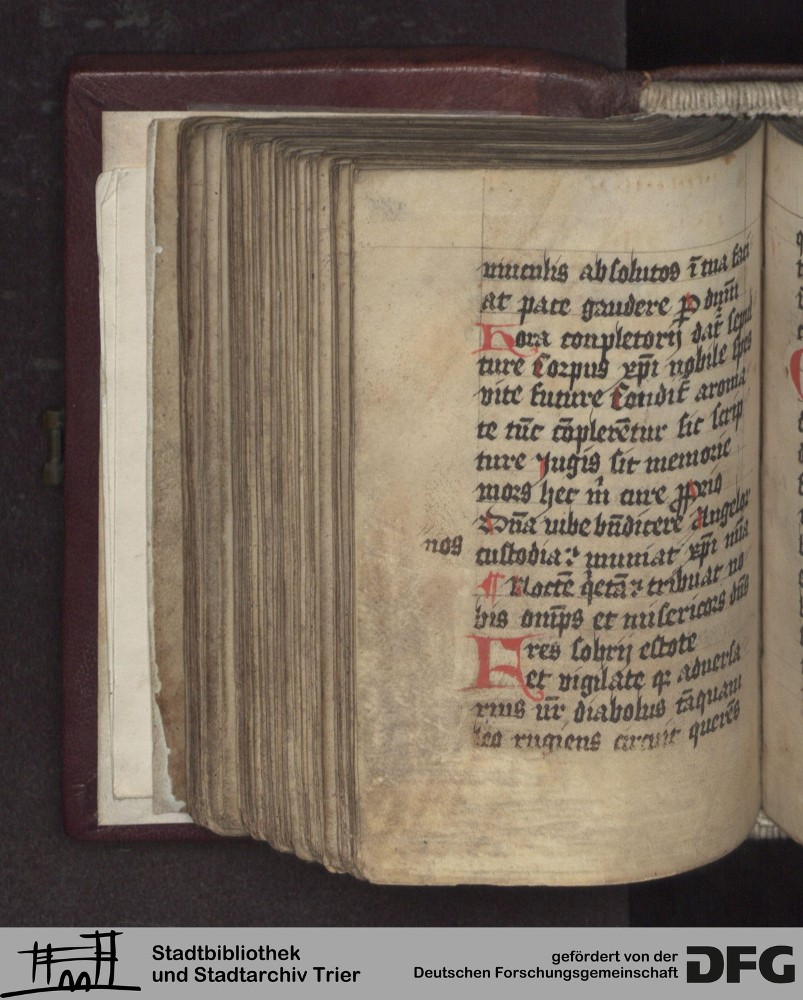 uinculis absolutos ī tua faci
at pace gaudere ꝑ dnm̄
Hora conpletorij dat̄ sepul
ture Corpus xp̄i nobile spes
vite future Condit̄ aroma
te tūc cōplerētur sic scrip
ture Jugis sit memorie
mors hec m̄ cure
Dn̄a uibe bn̄dicere Angelor
nos
custodia muniat xp̄i
¶ Noctē q̇etā tribuat no
bis om̄ps et misericors dn̄s
Fres sobrij estote
et vigilate qꝛ aduersa
rius ur̄ diabolus tāquam
leo rugiens circuit querēs
Stadtbibliothek
und Stadtarchiv Trier
gefördert von der
Deutschen Forschungsgemeinschaft
DFG